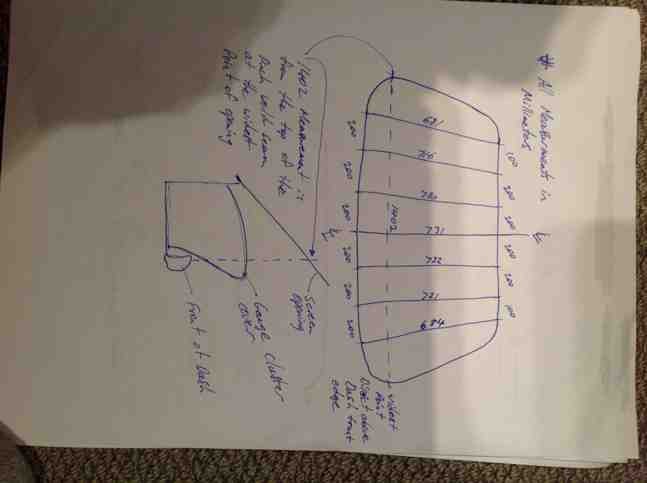 All Measurements in
Millimeters
100 200 200 200 200 100
681
766
780
731
722
721
684
1402
200 200 200 200 200 200
widest
Point
Direct above
Dash front
edge
1402 Measurement is
from the top of the
Dash
at the widest
Point of opening
Screen
opening
Gauge Cluster
cover
Front of Dash